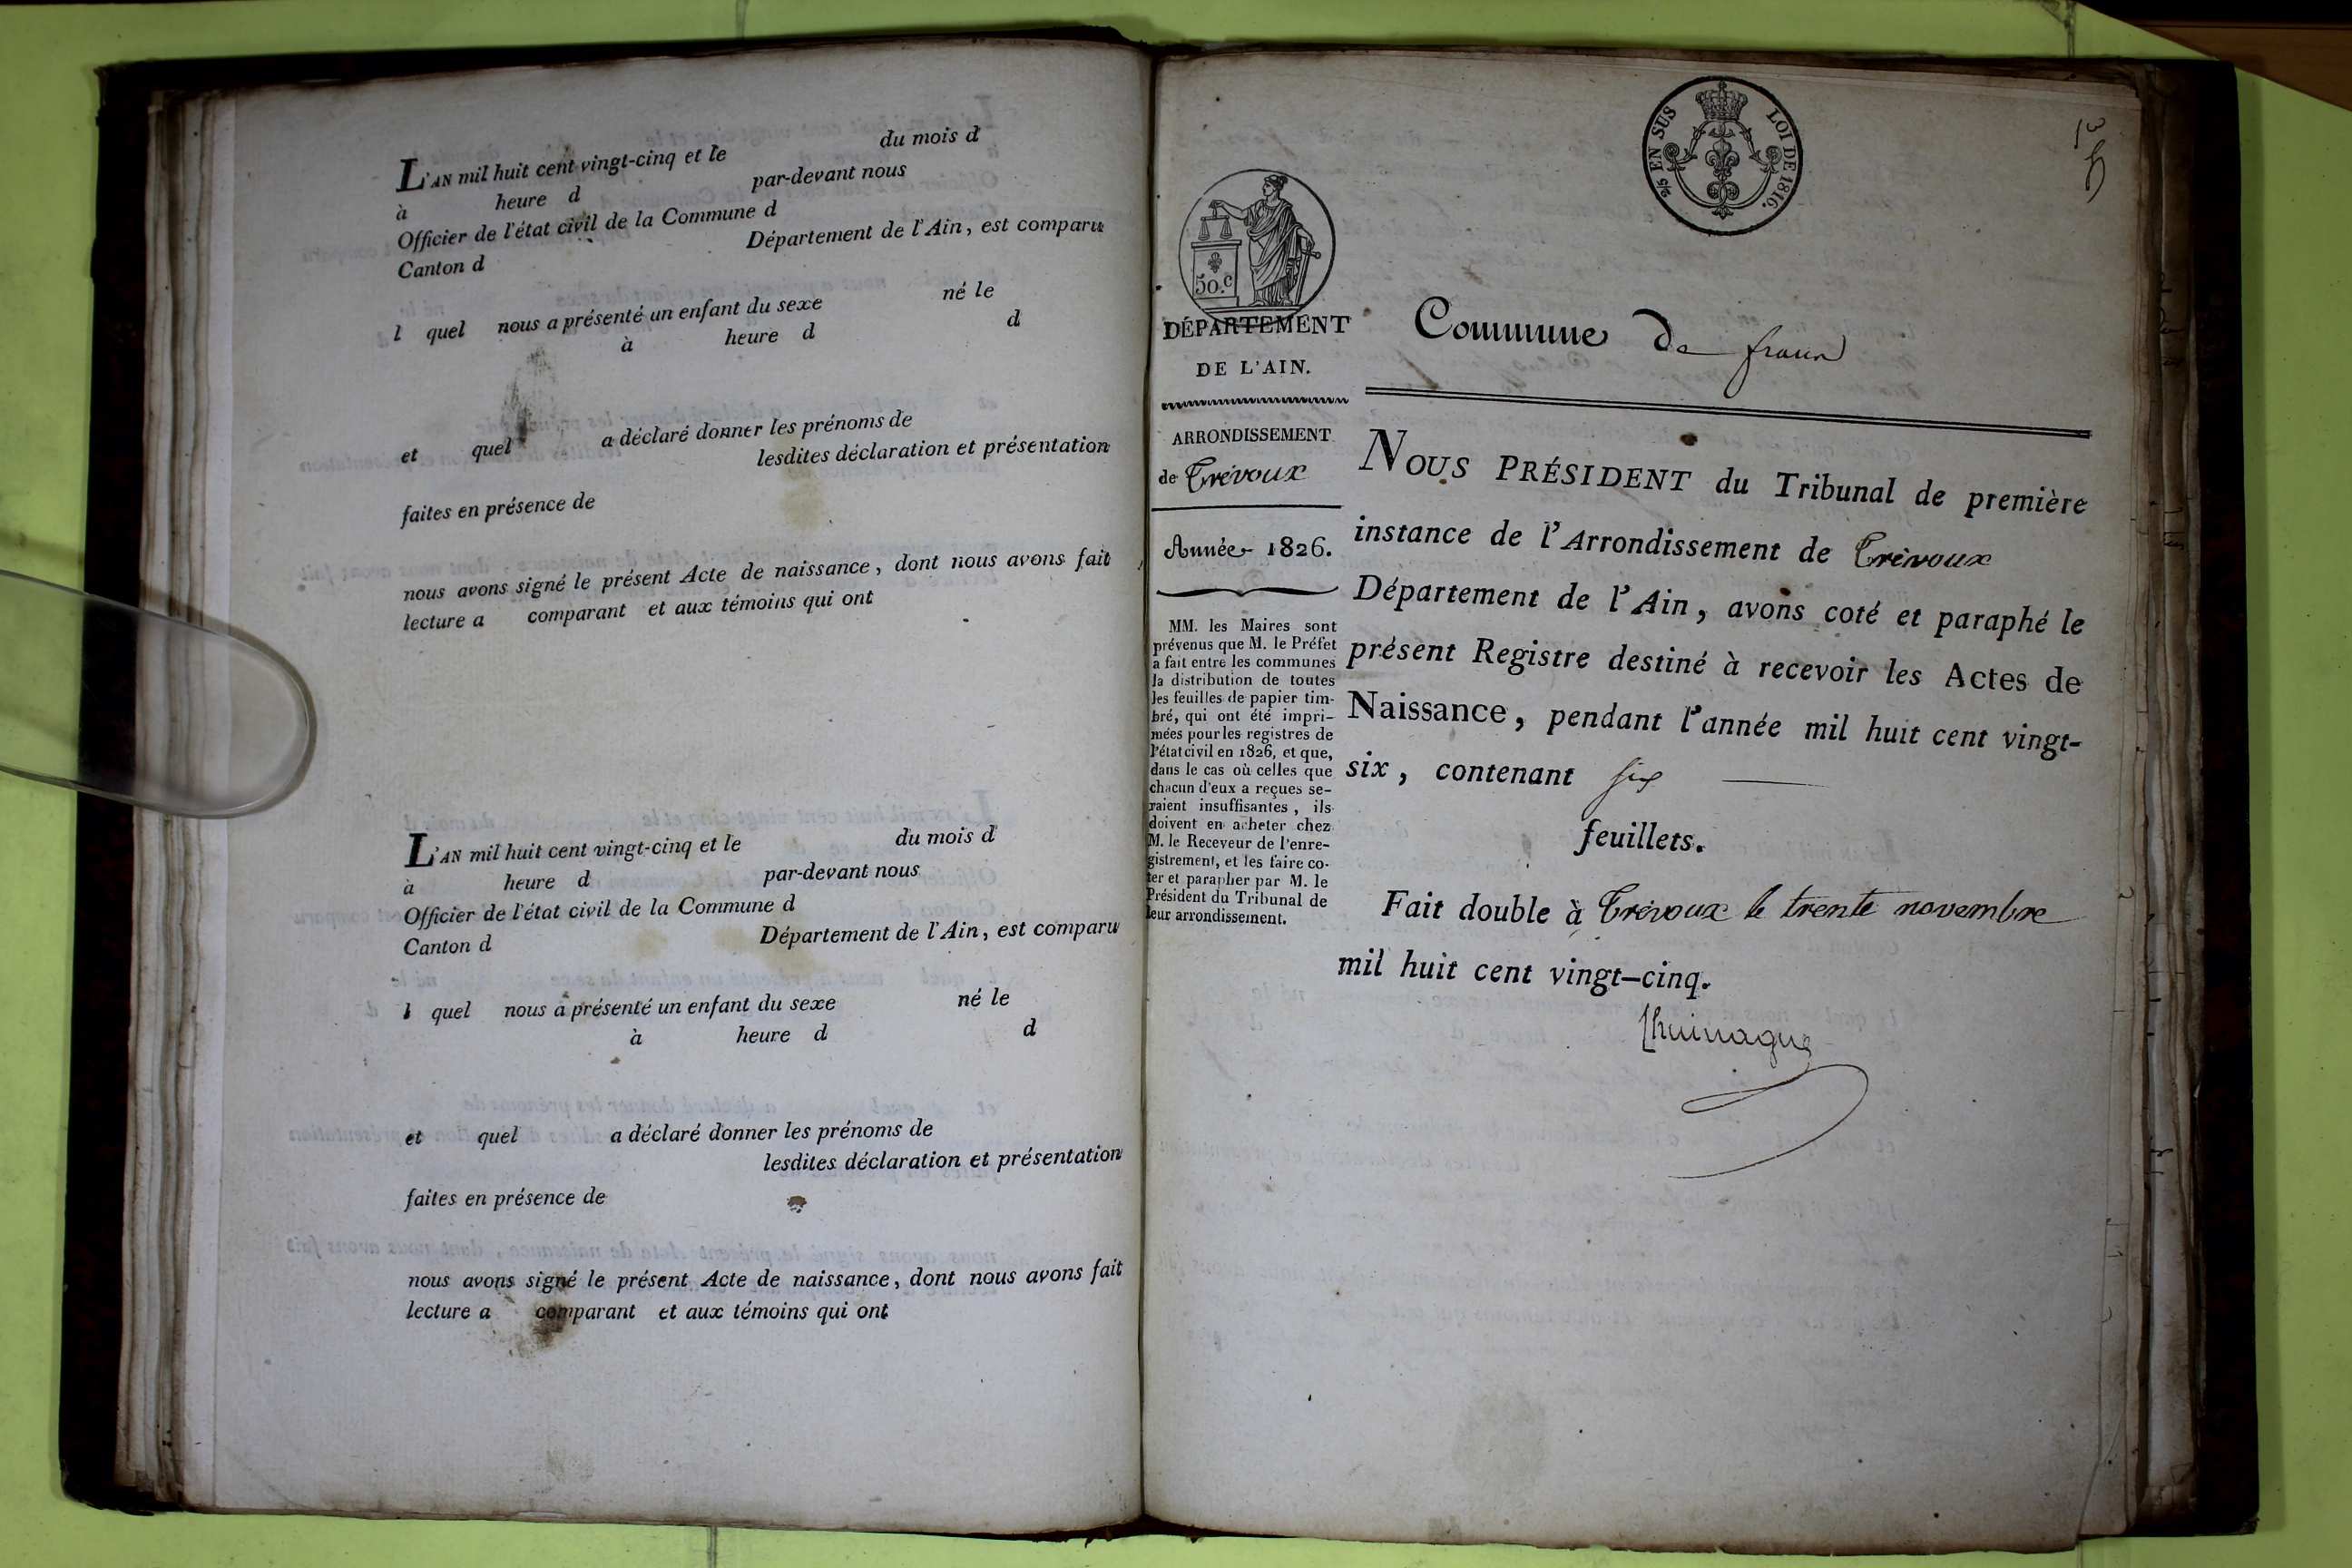 L'AN mil huit cent vingt-cinq et le du mois d
à heure d par-devant nous
Officier de l'état civil de la Commune d
Canton d Département de l'Ain, est comparu
l quel nous a présenté un enfant du sexe né le
à heure d d
et quel a déclaré donner les prénoms de
lesdites déclaration et présentation
faites en présence de
nous avons signé le présent Acte de naissance, dont nous avons fait
lecture a comparant et aux témoins qui ont
L'AN mil huit cent vingt-cinq et le du mois d
à heure d par-devant nous
Officier de l'état civil de la Commune d
Canton d Département de l'Ain, est comparu
l quel nous a présenté un enfant du sexe né le
à heure d d
et quel a déclaré donner les prénoms de
lesdites déclaration et présentation
faites en présence de
nous avons signé le présent Acte de naissance, dont nous avons fait
lecture a comparant et aux témoins qui ont
2/5 EN SUS LOI DE 1816.
50.c
DÉPARTEMENT
DE L'AIN.
ARRONDISSEMENT
de Trévoux
Année 1826.
MM. les Maires sont
prévenus que M. le Préfet
a fait entre les communes
la distribution de toutes
les feuilles de papier tim-
bré, qui ont été impri-
mées pour les registres de
l'état civil en 1826, et que,
dans le cas où celles que
chacun d'eux a reçues se-
raient insuffisantes, ils
doivent en acheter chez
M. le Receveur de l'enre-
gistrement, et les faire co-
ter et parapher par M. le
Président du Tribunal de
leur arrondissement.
Commune De frans
NOUS PRÉSIDENT du Tribunal de première
instance de l'Arrondissement de Trévoux
Département de l'Ain, avons coté et paraphé le
présent Registre destiné à recevoir les Actes de
Naissance, pendant l'année mil huit cent vingt-
six, contenant six
feuillets.
Fait double à Trévoux le trente novembre
mil huit cent vingt-cinq.